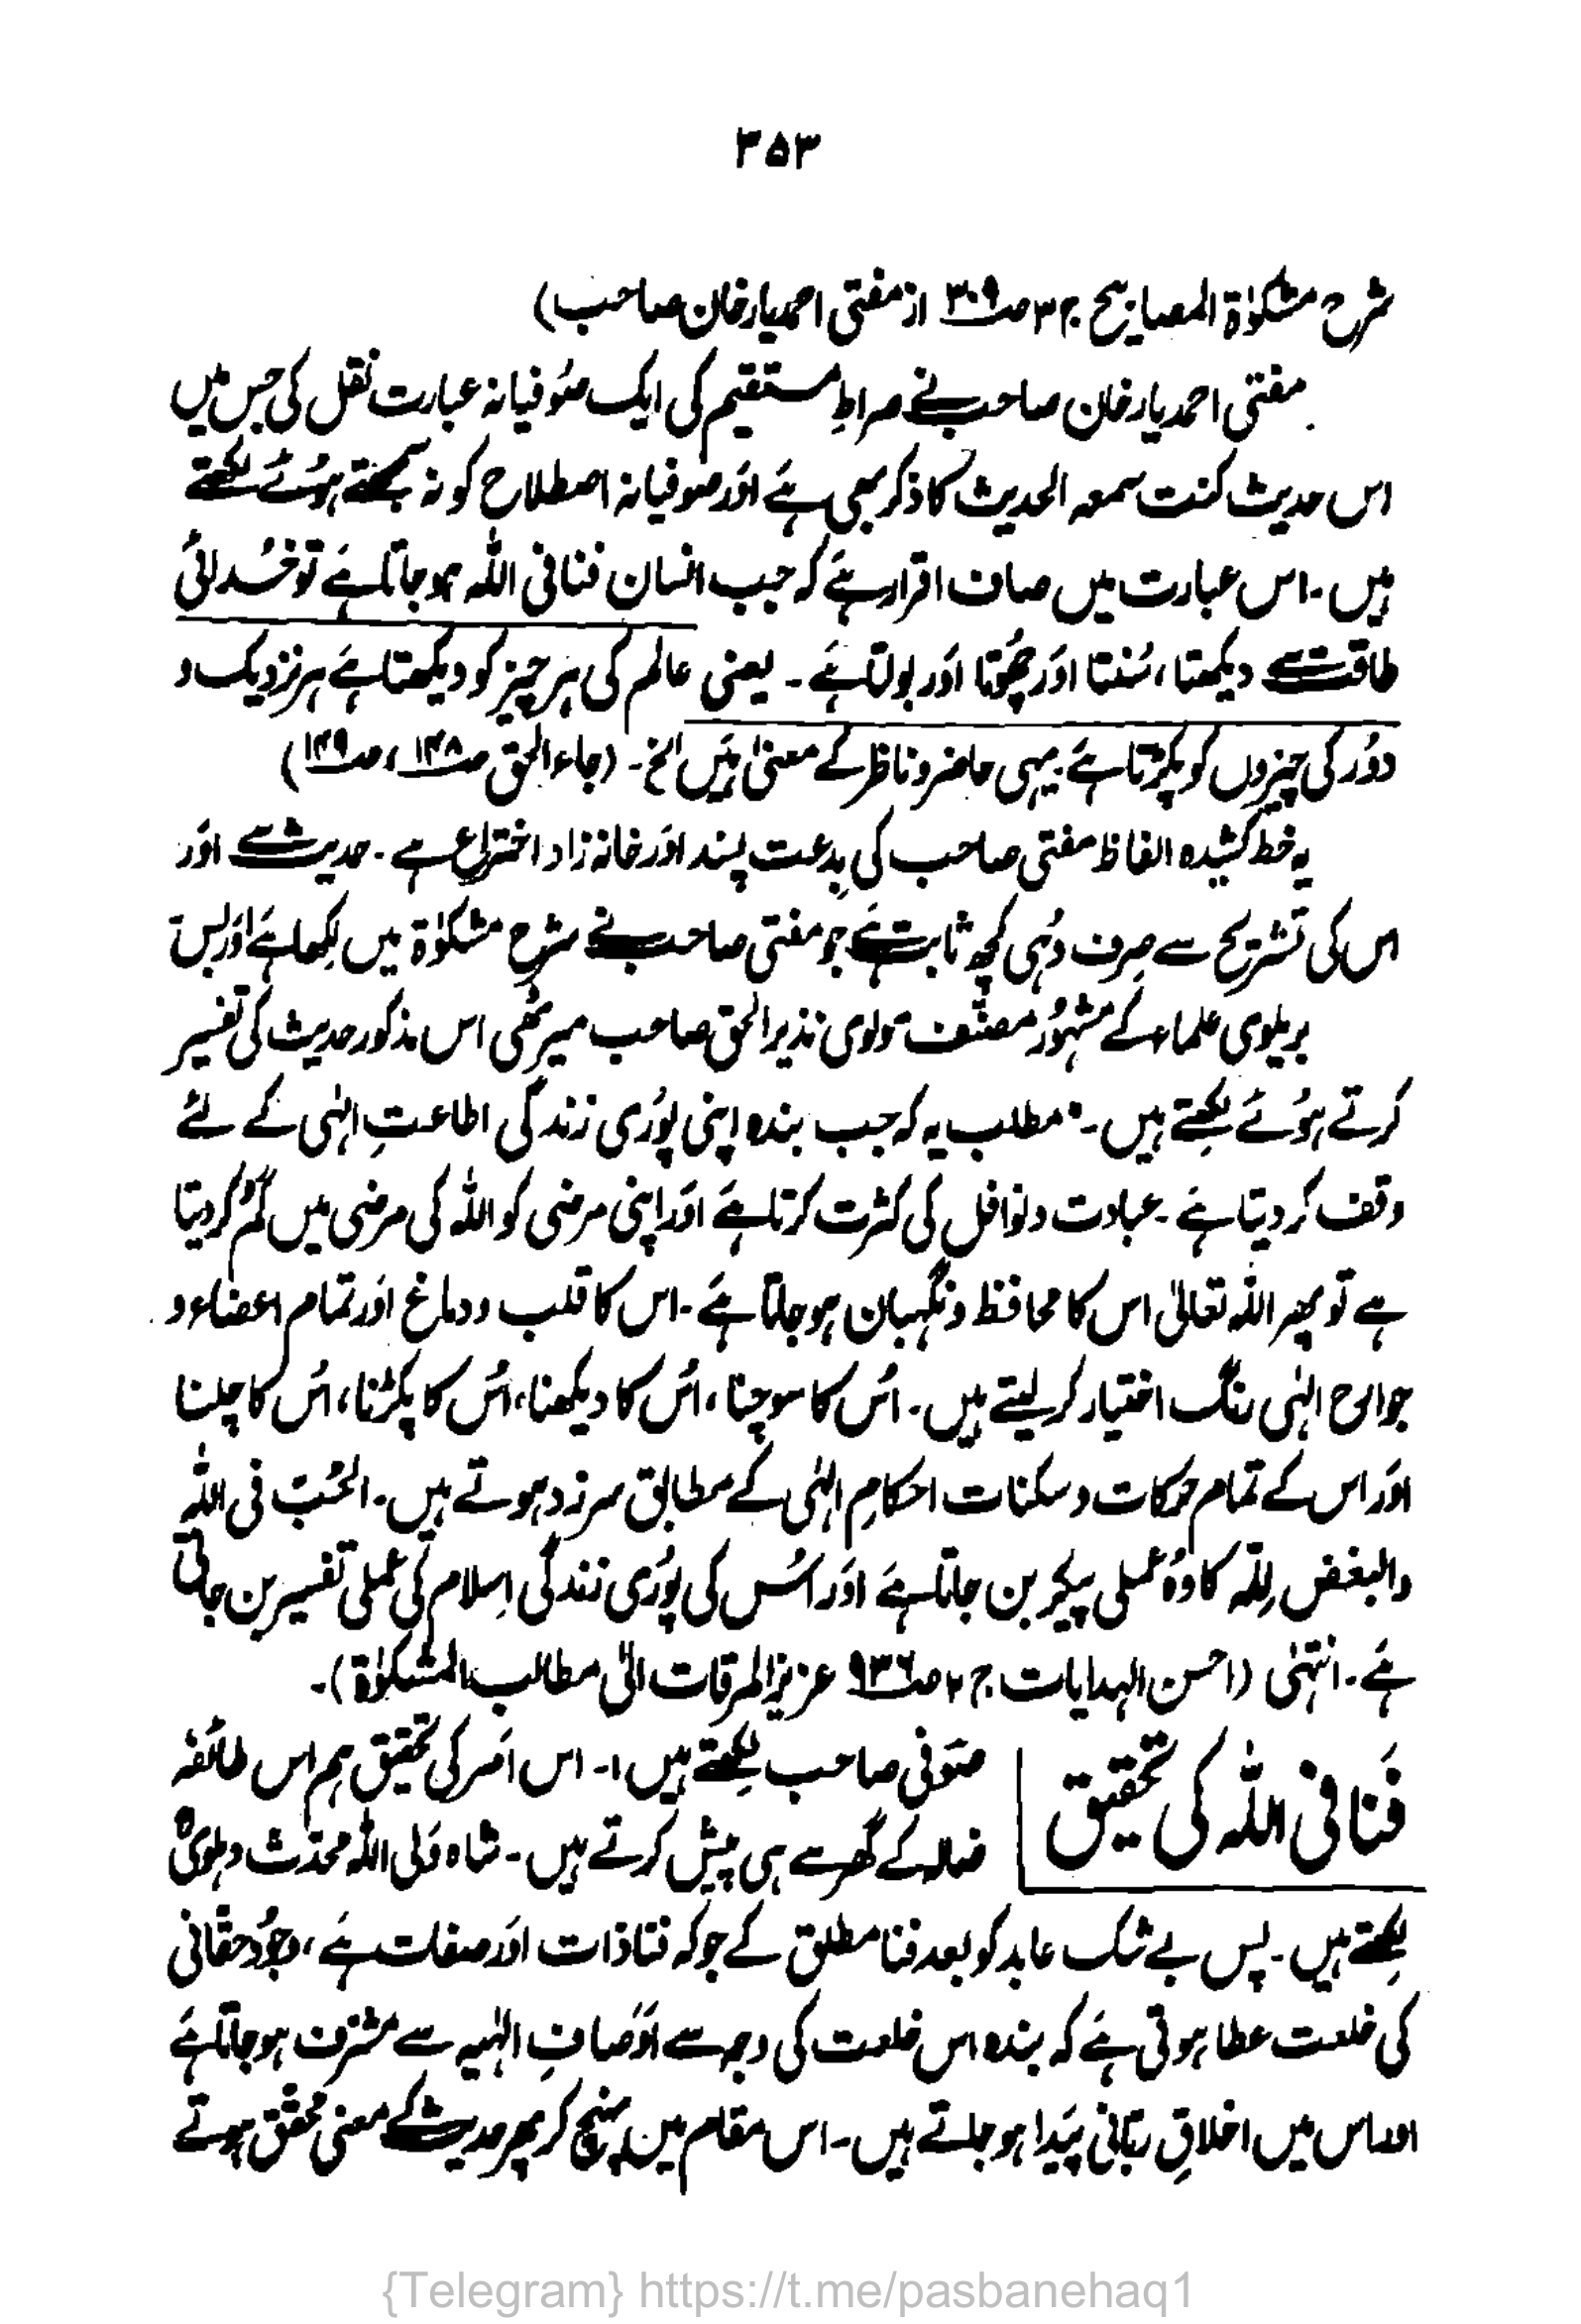 ۳۵۳
شرح مشکوٰۃ المصابیح ج ۳ ص۳۰۹ از مفتی احمد یار خان صاحب)
مفتی احمد یار خان صاحب نے صراطِ مستقیم کی ایک صُوفیانہ عبارت نقل کی جس میں
اس حدیث کنت سمعہ الحدیث کا ذکر بھی ہے اور صوفیانہ اصطلاح کو نہ سمجھتے ہوئے لکھتے
ہیں ۔ اس عبارت میں صاف اقرار ہے کہ جب انسان فنا فی اللہ ہو جاتا ہے تو خُدائی
طاقت سے دیکھتا ، سُنتا اور چھُوتا اور بولتا ہے ۔ یعنی عالم کی ہر چیز کو دیکھتا ہے ہر نزدیک و
دُور کی چیزوں کو پکڑتا ہے یہی حاضر و ناظر کے معنیٰ ہیں الخ ۔ (جاء الحق ص۱۴۸ ، ص۱۴۹)
یہ خط کشیدہ الفاظ مفتی صاحب کی بدعت پسند اور خانہ زاد اختراع ہے ۔ حدیث سے اور
اس کی تشریح سے صِرف وہی کچھ ثابت ہے جو مفتی صاحب نے شرح مشکوٰۃ میں لکھا ہے اور بس ۔
بریلوی علماء کے مشہُور مصنّف مولوی نذیر الحق صاحب میرٹھی اس مذکور حدیث کی تفسیر
کرتے ہوئے لکھتے ہیں ۔ "مطلب یہ کہ جب بندہ اپنی پُوری زندگی اطاعتِ الٰہی کے لئے
وقف کر دیتا ہے ۔ عبادت و نوافل کی کثرت کرتا ہے اور اپنی مرضی کو اللہ کی مرضی میں گُم کر دیتا
ہے تو پھر اللہ تعالیٰ اس کا محافظ و نگہبان ہو جاتا ہے ۔ اس کا قلب و دماغ اور تمام اعضاء و
جوارح الٰہی رنگ اختیار کر لیتے ہیں ۔ اُس کا سوچنا ، اُس کا دیکھنا ، اُس کا پکڑنا ، اُس کا چلنا
اور اس کے تمام حرکات و سکنات احکامِ الٰہی کے مطابق سرزد ہوتے ہیں ۔ الحُبّ فی اللہ
والبغض لِلّٰہ کا وُہ عملی پیکر بن جاتا ہے اور اُس کی پُوری زندگی اِسلام کی عملی تفسیر بن جاتی
ہے ۔ انتہٰی (احسن الہدایات ج ۲ ص۹۳۶ عزیز المرقات الیٰ مطالب المشکوٰۃ) ۔
فَنا فی اللہ کی تحقیق
صُوفی صاحب لکھتے ہیں :۔ اس امر کی تحقیق ہم اس طائفہ
ضالہ کے گھر سے ہی پیش کرتے ہیں ۔ شاہ وَلی اللہ محدّث دہلویؒ
لکھتے ہیں ۔ پس بے شک عابد کو بعد فنا مطلق کے جو کہ فنا ذات اور صفات ہے ، وجُود حقانی
کی خلعت عطا ہوتی ہے کہ بندہ اس خلعت کی وجہ سے اَوصافِ الٰہیہ سے مشرّف ہو جاتا ہے
اور اس میں اخلاقِ ربّانی پَیدا ہو جاتے ہیں ۔ اس مقام میں پہنچ کر پھر حدیث کے معنی محقّق ہوتے
{Telegram} https://t.me/pasbanehaq1